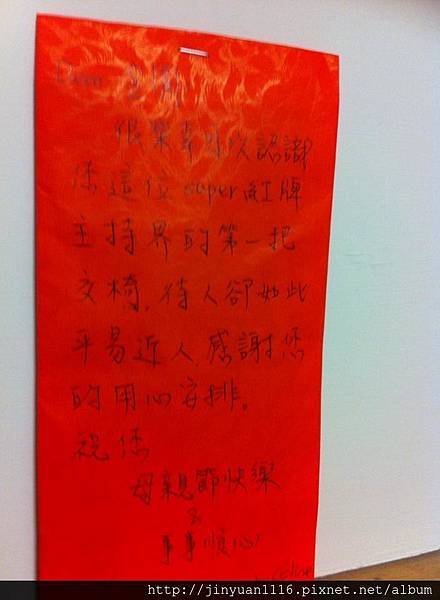 Dear
很榮幸可以認識
您這位super紅牌
主持界的第一把
交椅,待人卻如此
平易近人,感謝您
的用心安排。
祝您
母親節快樂
&
事事順心!
http://jinyuan1116.pixnet.net/album